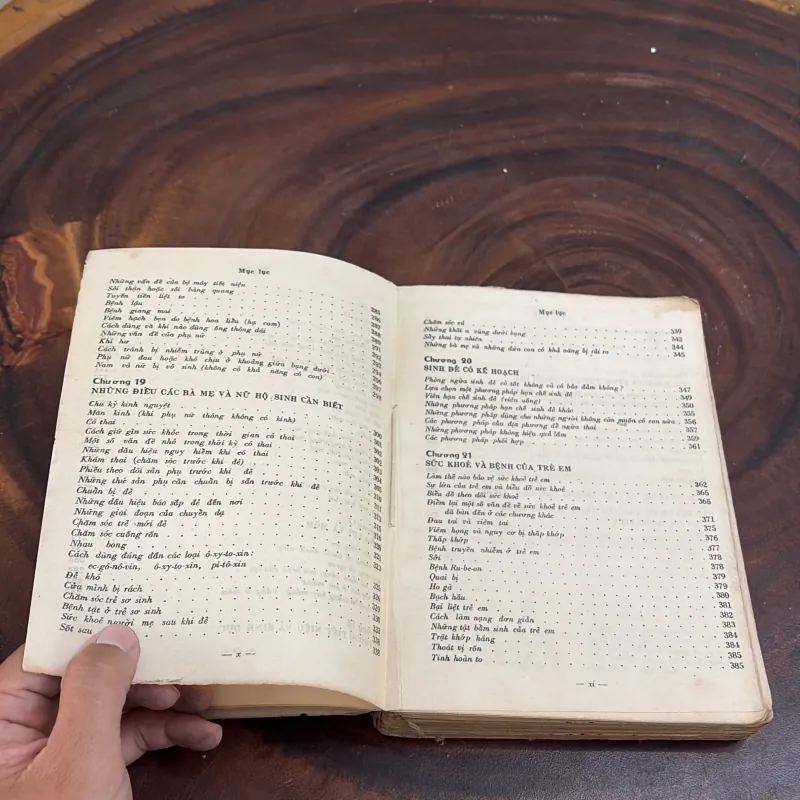 Mục lục
Những vấn đề của bộ máy tiết niệu
Sỏi thận hoặc sỏi bàng quang
Tuyến tiền liệt to
Bệnh lậu 285
Bệnh giang mai 286
Viêm hạch bẹn do bệnh hoa liễu (hạ cam) 287
Cách dùng và khi nào dùng ống thông đái
Những vấn đề của phụ nữ
Khí hư
Cách tránh bị nhiễm trùng ở phụ nữ
Phụ nữ đau hoặc khó chịu ở khoảng giữa bụng dưới
Nam và nữ bị vô sinh (không có khả năng có con)
Chương 19
NHỮNG ĐIỀU CÁC BÀ MẸ VÀ NỮ HỘ SINH CẦN BIẾT
Chu kỳ kinh nguyệt
Mãn kinh (khi phụ nữ thông không có kinh)
Có thai
Cách giữ gìn sức khỏe trong thời gian có thai
Một số vấn đề nhỏ trong thời kỳ có thai
Những dấu hiệu nguy hiểm khi có thai
Khám thai (chăm sóc trước khi đẻ)
Phiếu theo dõi sản phụ trước khi đẻ
Những thứ sản phụ cần chuẩn bị sẵn trước khi đẻ
Chuẩn bị đẻ
Những dấu hiệu báo sắp đẻ đến nơi
Những giai đoạn của chuyển dạ
Chăm sóc trẻ mới đẻ
Chăm sóc cuống rốn
Nhau bong
Cách dùng đúng đắn các loại ô-xy-to-xin:
ec-gô-nô-vin, ô-xy-to-xin, pi-tô-xin
Đẻ khó
Cửa mình bị rách
Chăm sóc trẻ sơ sinh
Bệnh tật ở trẻ sơ sinh
Sức khoẻ người mẹ sau khi đẻ
Sốt sau
— x —
Mục lục
Chăm sóc vú 339
Những khối u vùng dưới bụng 342
Sẩy thai tự nhiên 344
Những bà mẹ và những đứa con có khả năng bị rủi ro 345
Chương 20
SINH ĐẺ CÓ KẾ HOẠCH
Phòng ngừa sinh đẻ có tốt không và có bảo đảm không? 347
Lựa chọn một phương pháp hạn chế sinh đẻ 349
Viên hạn chế sinh đẻ (viên uống) 350
Những phương pháp hạn chế sinh đẻ khác 355
Những phương pháp dùng cho những người không còn muốn có con nữa 356
Các phương pháp của địa phương để ngừa thai 357
Những phương pháp không hiệu quả lắm 359
Các phương pháp phối hợp 361
Chương 21
SỨC KHOẺ VÀ BỆNH CỦA TRẺ EM
Làm thế nào bảo vệ sức khoẻ trẻ em 362
Sự lớn của trẻ em và biểu đồ sức khoẻ 365
Biểu đồ theo dõi sức khoẻ 365
Điểm lại một số vấn đề về sức khoẻ trẻ em
đã bàn đến ở các chương khác 371
Đau tai và viêm tai 375
Viêm họng và nguy cơ bị thấp khớp 376
Thấp khớp 377
Bệnh truyền nhiễm ở trẻ em 378
Sởi 378
Bệnh Ru-be-on 379
Quai bị 379
Ho gà 380
Bạch hầu 381
Bại liệt trẻ em 382
Cách làm nạng đơn giản 383
Những tật bẩm sinh của trẻ em 384
Trật khớp háng 384
Thoát vị rốn 385
Tinh hoàn to 385
— xi —